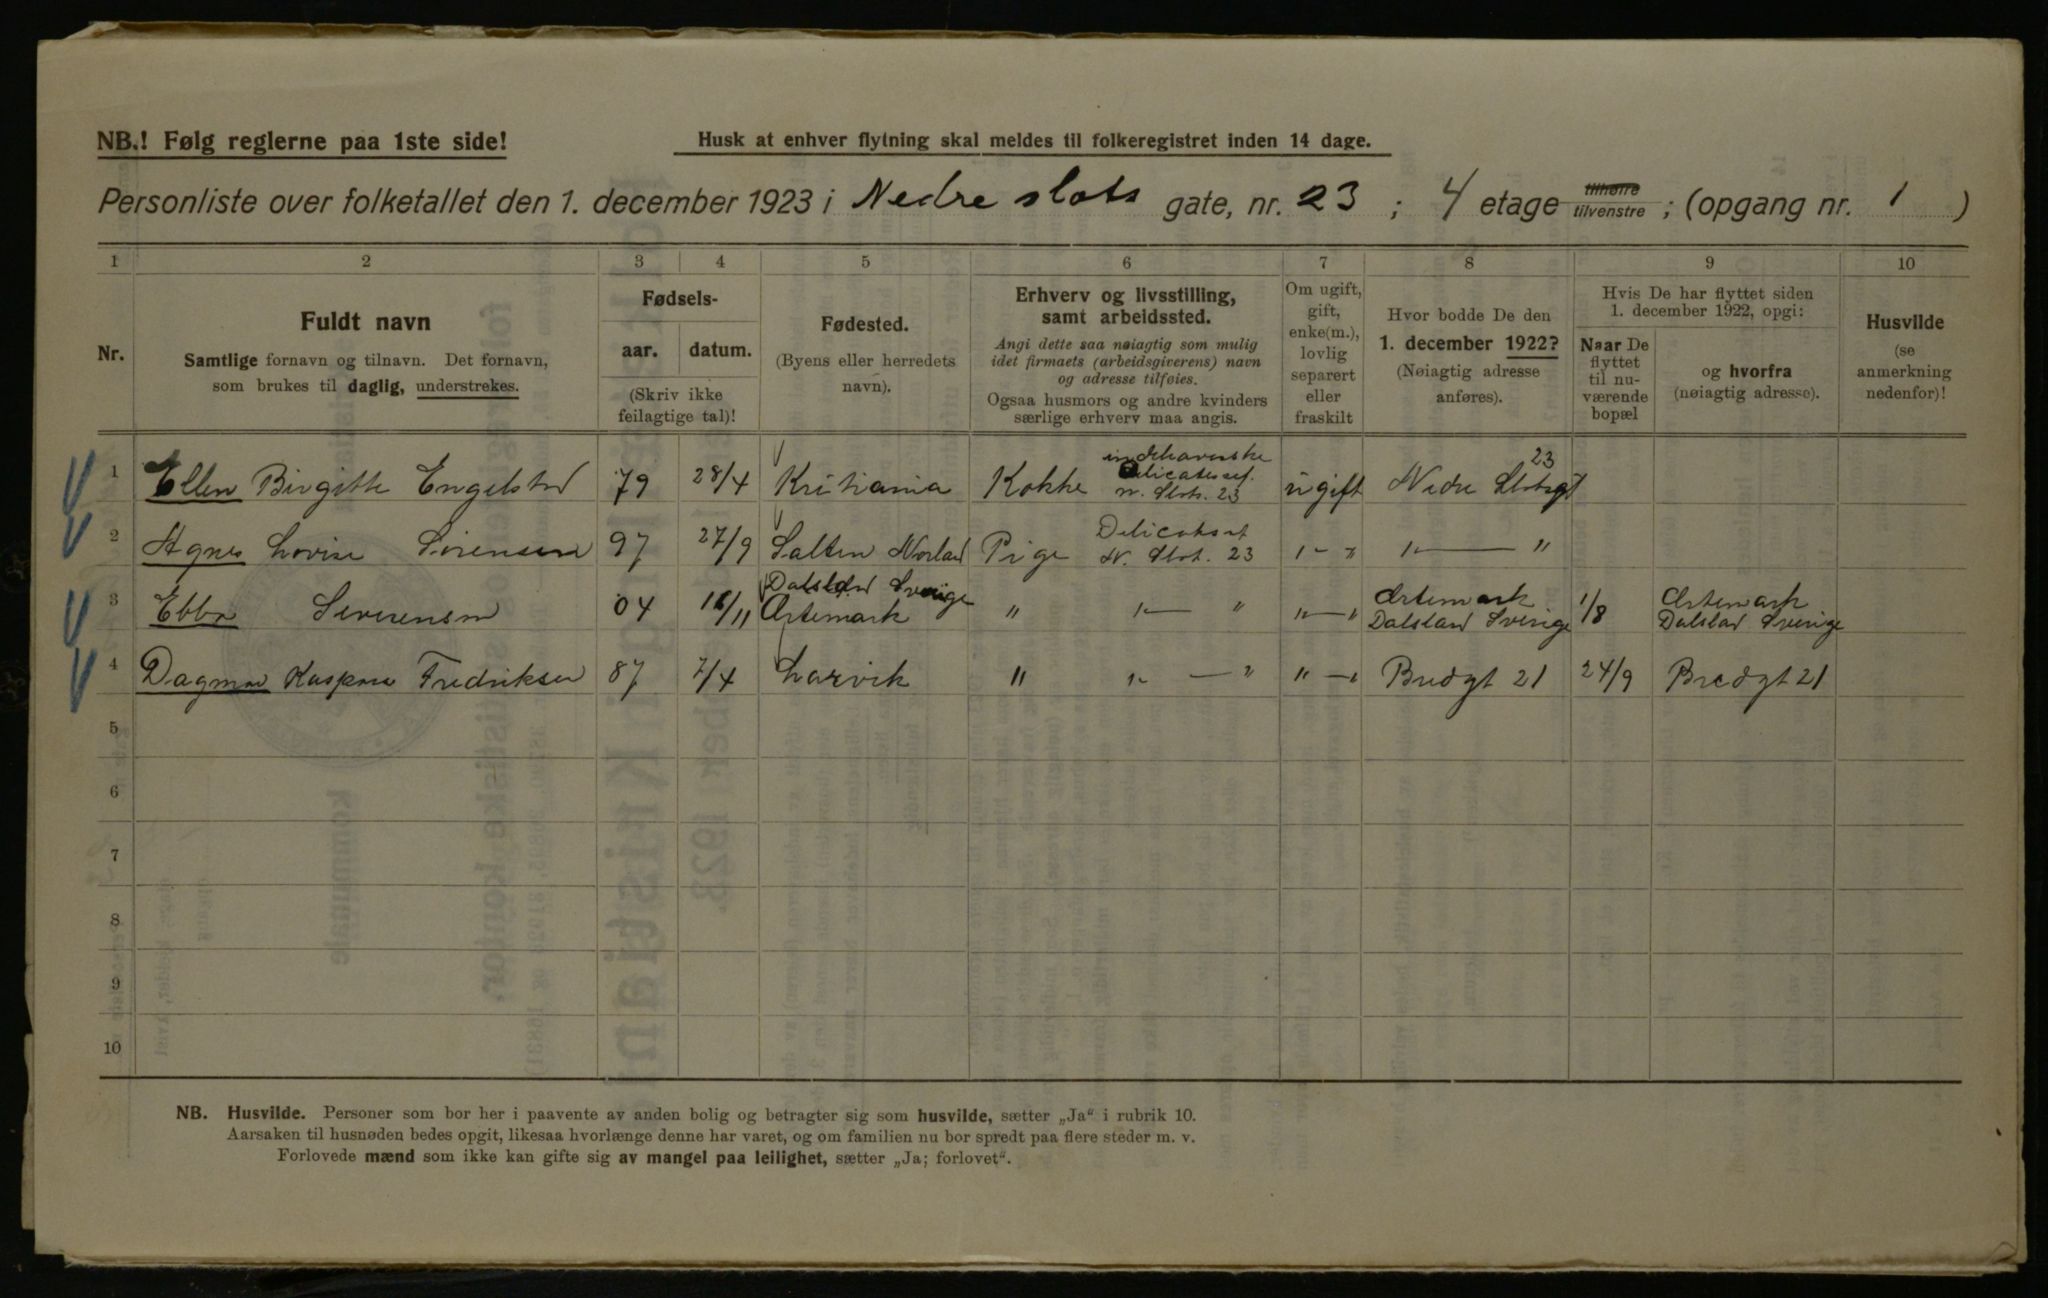 NB.! Følg reglerne paa 1ste side!
Husk at enhver flytning skal meldes til folkeregistret inden 14 dage.
Personliste over folketallet den 1. december 1923 i Nedre slots gate, nr. 23 ; 4 etage tilhøire tilvenstre ; (opgang nr. 1 )
1 2 3 4 5 6 7 8 9 10
Nr.
Fuldt navn
Samtlige fornavn og tilnavn. Det fornavn,
som brukes til daglig, understrekes.
Fødsels-
aar. datum.
(Skriv ikke
feilagtige tal)!
Fødested.
(Byens eller herredets
navn).
Erhverv og livsstilling,
samt arbeidssted.
Angi dette saa nøiagtig som mulig
idet firmaets (arbeidsgiverens) navn
og adresse tilføies.
Ogsaa husmors og andre kvinders
særlige erhverv maa angis.
Om ugift,
gift,
enke(m.),
lovlig
separert
eller
fraskilt
Hvor bodde De den
1. december 1922?
(Nøiagtig adresse
anføres).
Hvis De har flyttet siden
1. december 1922, opgi:
Naar De
flyttet
til nu-
værende
bopæl
og hvorfra
(nøiagtig adresse).
Husvilde
(se
anmerkning
nedenfor)!
1 Ellen Birgitte Engelstad 79 28/4 Kristiania Kokke Delicatessef. N. Slots. 23 ugift Nedre Slotsgt 23
2 Agnes Lovise Sørensen 97 27/9 Salten Norland Pige Delicatess N. Slot. 23 "—" "—"
3 Ebba Severensen 04 /11 Dalsland Sverige Ærtemark " "—" "—" Ærtemark Dalsland Sverige 1/8 Ærtemark Dalsland Sverige
4 Dagmar Kaspara Fredriksen 87 7/4 Larvik " "—" "—" Bredgt 21 24/9 Bredgt 21
5
6
7
8
9
10
NB. Husvilde. Personer som bor her i paavente av anden bolig og betragter sig som husvilde, sætter „Ja“ i rubrik 10.
Aarsaken til husnøden bedes opgit, likesaa hvorlænge denne har varet, og om familien nu bor spredt paa flere steder m. v.
Forlovede mænd som ikke kan gifte sig av mangel paa leilighet, sætter „Ja; forlovet“.